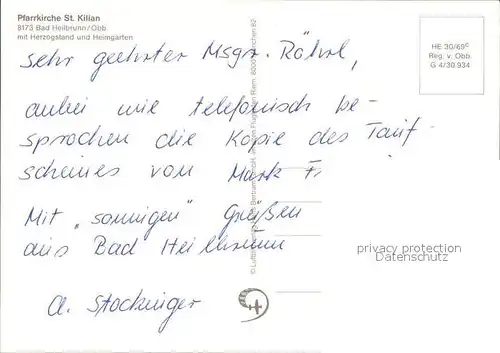 Pfarrkirche St. Kilian
8173 Bad Heilbrunn/Obb.
mit Herzogstand und Heimgarten
HE 30/69c
Reg. v. Obb.
G 4/30.934
sehr geehrter Msgr. Röhrl,
anbei wie telefonisch be-
sprochen die Kopie des Tauf
scheines von Mark F
Mit "sonnigen" Grüßen
aus Bad Heilbrunn
A. Stockinger
privacy protection
Datenschutz